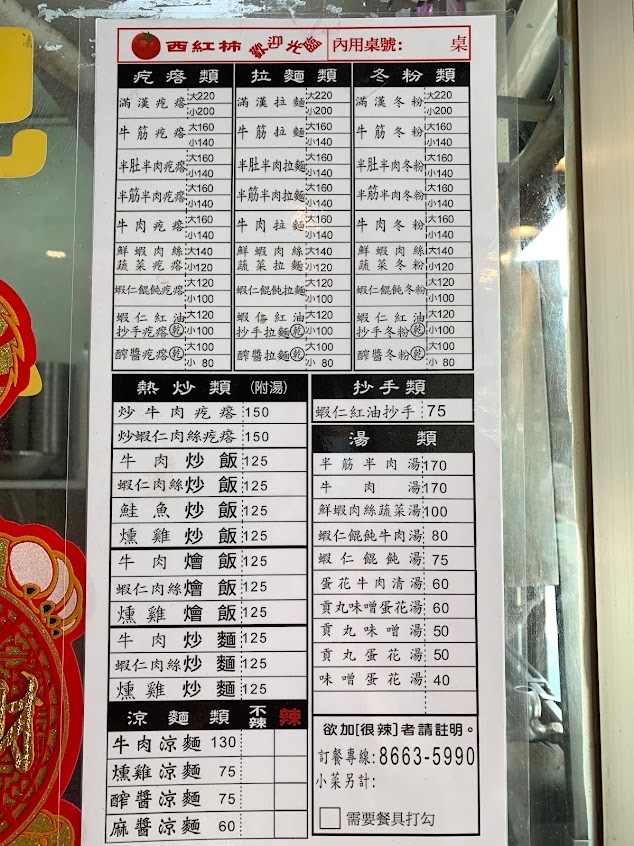 西紅柿 歡迎光臨 內用桌號: 桌
疙瘩類
滿漢疙瘩 大220 小200
牛筋疙瘩 大160 小140
半肚半肉疙瘩 大160 小140
半筋半肉疙瘩 大160 小140
牛肉疙瘩 大160 小140
鮮蝦肉絲蔬菜疙瘩 大140 小120
蝦仁餛飩疙瘩 大120 小100
蝦仁紅油抄手疙瘩(乾) 大120 小100
醡醬疙瘩(乾) 大100 小80
拉麵類
滿漢拉麵 大220 小200
牛筋拉麵 大160 小140
半肚半肉拉麵 大160 小140
半筋半肉拉麵 大160 小140
牛肉拉麵 大160 小140
鮮蝦肉絲蔬菜拉麵 大140 小120
蝦仁餛飩拉麵 大120 小100
蝦紅油抄手拉麵(乾) 大120 小100
醡醬拉麵(乾) 大100 小80
冬粉類
滿漢冬粉 大220 小200
牛筋冬粉 大160 小140
半肚半肉冬粉 大160 小140
半筋半肉冬粉 大160 小140
牛肉冬粉 大160 小140
鮮蝦肉絲蔬菜冬粉 大140 小120
蝦仁餛飩冬粉 大120 小100
蝦仁紅油抄手冬粉(乾) 大120 小100
醡醬冬粉(乾) 大100 小80
熱炒類(附湯)
炒牛肉疙瘩 150
炒蝦仁肉絲疙瘩 150
牛肉炒飯 125
蝦仁肉絲炒飯 125
鮭魚炒飯 125
燻雞炒飯 125
牛肉燴飯 125
蝦仁肉絲燴飯 125
燻雞燴飯 125
牛肉炒麵 125
蝦仁肉絲炒麵 125
燻雞炒麵 125
涼麵類 不辣 辣
牛肉涼麵 130
燻雞涼麵 75
醡醬涼麵 75
麻醬涼麵 60
抄手類
蝦仁紅油抄手 75
湯類
半筋半肉湯 170
牛肉湯 170
鮮蝦肉絲蔬菜湯 100
蝦仁餛飩牛肉湯 80
蝦仁餛飩湯 75
蛋花牛肉清湯 60
貢丸味噌蛋花湯 60
貢丸味噌湯 50
貢丸蛋花湯 50
味噌蛋花湯 40
欲加[很辣]者請註明。
訂餐專線:8663-5990
小菜另計:
需要餐具打勾